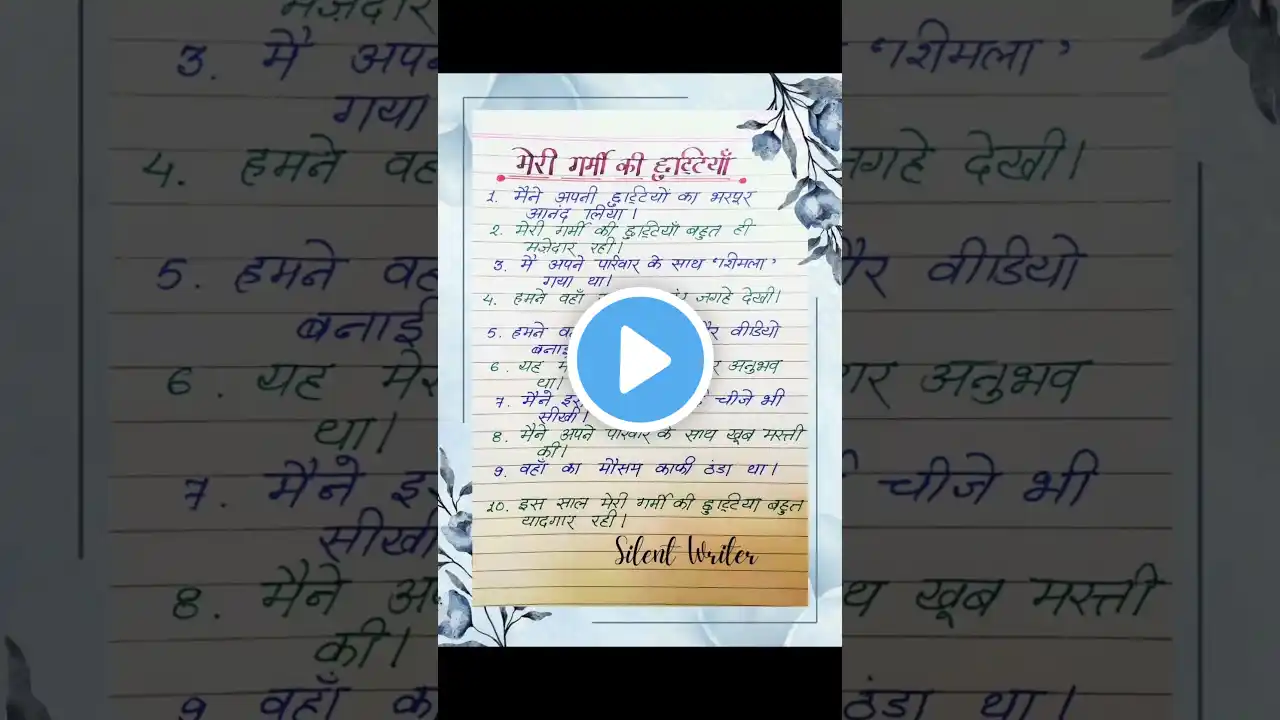 मेरी गर्मी की छुट्टियाँ
1. मैने अपनी छुट्टियों का भरपूर
आनंद लिया।
2. मेरी गर्मी की छुट्टियाँ बहुत ही
मज़ेदार रही।
3. मैं अपने परिवार के साथ "शिमला"
गया था।
4. हमने वहाँ जगहे देखी।
5. हमने वीडियो
6. यह अनुभव
था।
7. मैंने चीजे भी
सीखी।
8. मैंने अपने परिवार के साथ खूब मस्ती
की।
9. वहाँ का मौसम काफी ठंडा था।
10. इस साल मेरी गर्मी की छुट्टियां बहुत
यादगार रही।
Silent Writer